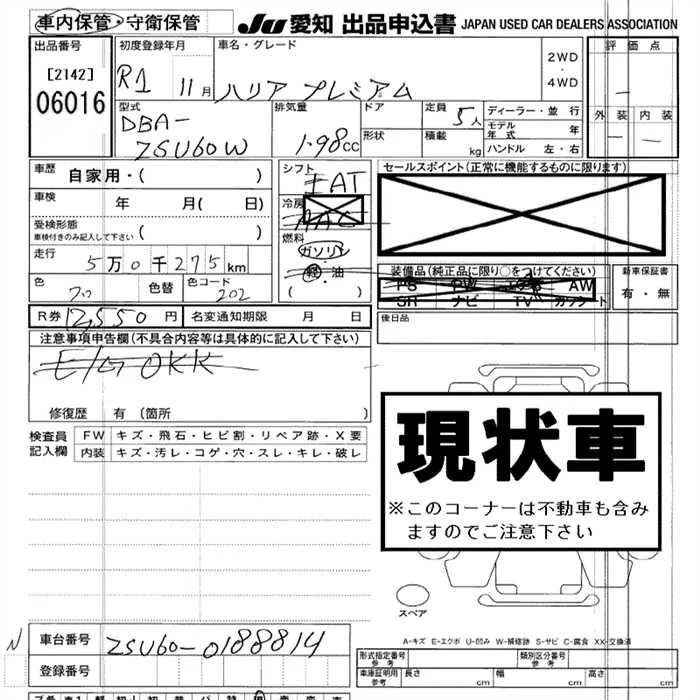 車内保管・守衛保管 JU 愛知 出品申込書 JAPAN USED CAR DEALERS ASSOCIATION
出品番号 初度登録年月 車名・グレード 評価点
[2142] R1 11月 ハリア プレミアム 2WD・4WD
06016 型式 排気量 ドア 定員 5人 ディーラー・並行 外装 内装
DBA- モデル年式 年
ZSU60W 1.98cc 形状 積載 kg ハンドル 左・右
車歴 自家用・( ) シフト セールスポイント(正常に機能するものに限ります)
IAT
車検 年 月( 日) 冷房
AAC
受検形態 ( )
車検付きのみ記入して下さい
燃料
ガソリン
走行 5万0千275km 軽・油 装備品(純正品に限り○をつけてください) 新車保証書
PS PW AW 有・無
色 色替 色コード 202 ( ) SR ナビ TV
R券 12,550円 名変通知期限 月 日 後日品
注意事項申告欄(不具合内容等は具体的に記入して下さい)
E/G OKK
修復歴 有(箇所 )
検査員記入欄 FW キズ・飛石・ヒビ割・リペア跡・X要
内装 キズ・汚レ・コゲ・穴・スレ・キレ・破レ
現状車
※このコーナーは不動車も含み
ますのでご注意下さい
スペア
A-キズ E-エクボ U-凹み W-補修跡 S-サビ C-腐食 XX-交換済
N 車台番号 ZSU60-0188814 形式指定番号 参考 類別区分番号 参考
登録番号 車庫証明用 参考 長さ cm 幅 cm 高さ cm